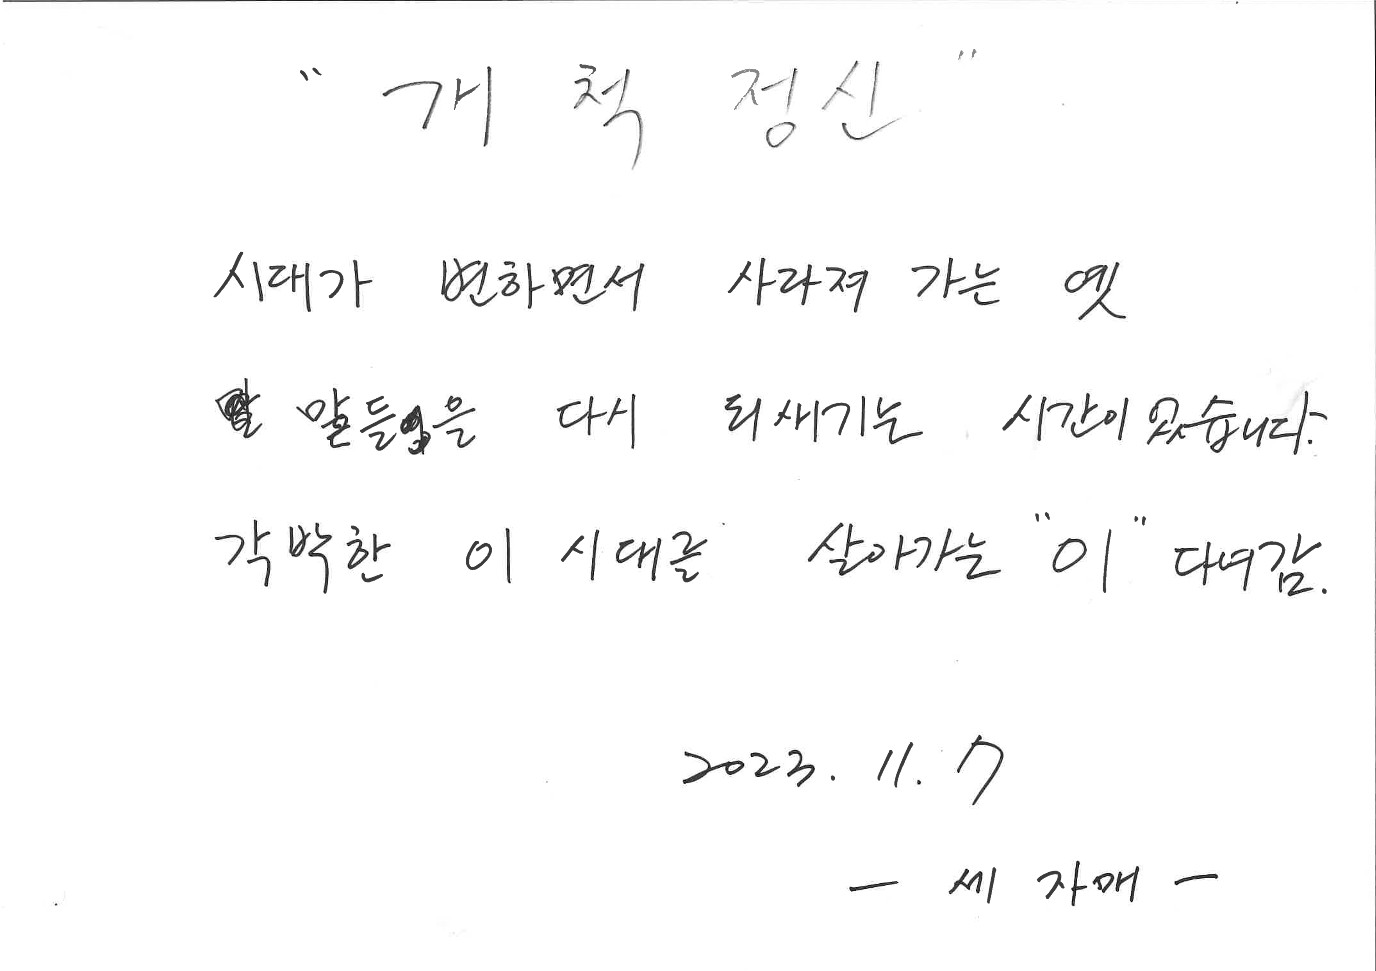 "개척정신"
시대가 변하면서 사라져 가는 옛
말들을 다시 되새기는 시간이 었습니다.
각박한 이 시대를 살아가는 "이" 다녀감.
2023. 11. 7
- 세 자매 -